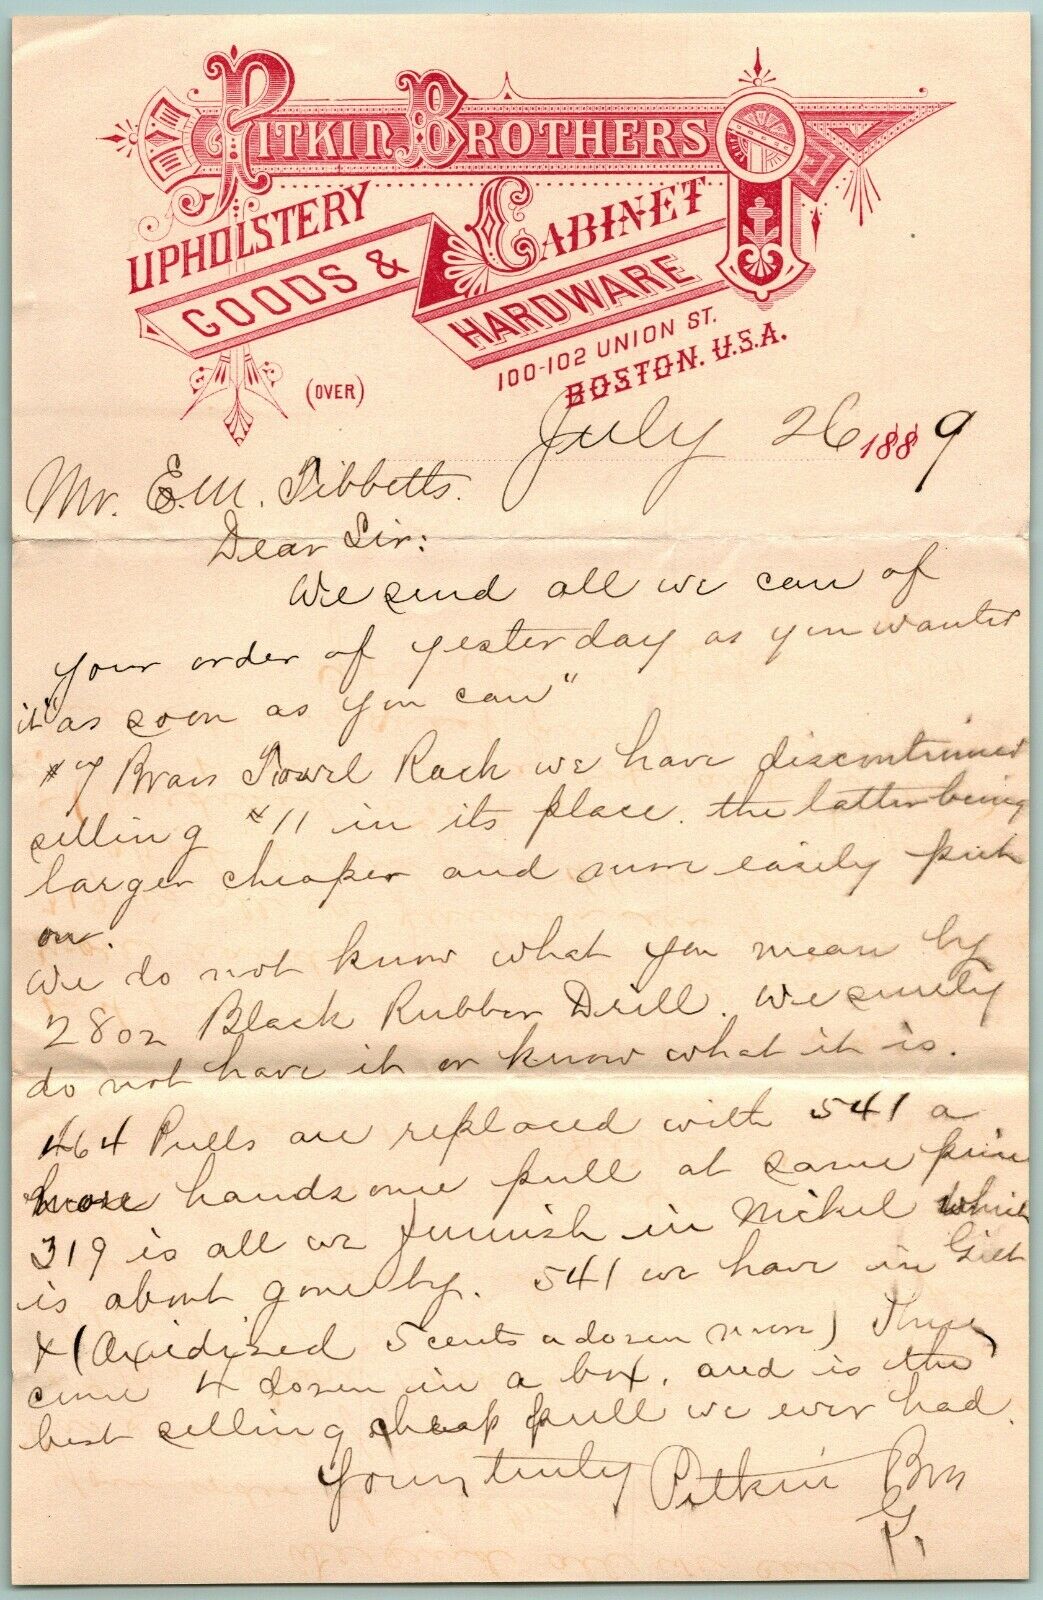 PITKIN BROTHERS
UPHOLSTERY
GOODS &
CABINET
HARDWARE
100-102 UNION ST.
BOSTON. U.S.A.
(OVER)
July 26 1889
Mr. E.M. Tibbetts.
Dear Sir:
We send all we can of
your order of yesterday as you wanted
it "as soon as you can"
#7 Brass Towel Rack we have discontinued
selling #11 in its place. the latter being
larger cheaper and more easily put
on.
We do not know what you mean by
28 oz Black Rubber Drill. We surely
do not have it or know what it is.
464 Pulls are replaced with 541 a
more handsome pull at same price
319 is all we furnish in Nickel which
is about gone by. 541 we have in Gilt
& (Oxidized 5 cents a dozen more) These
come 4 dozen in a box, and is the
best selling cheap pull we ever had.
Yours truly Pitkin Bros
G.